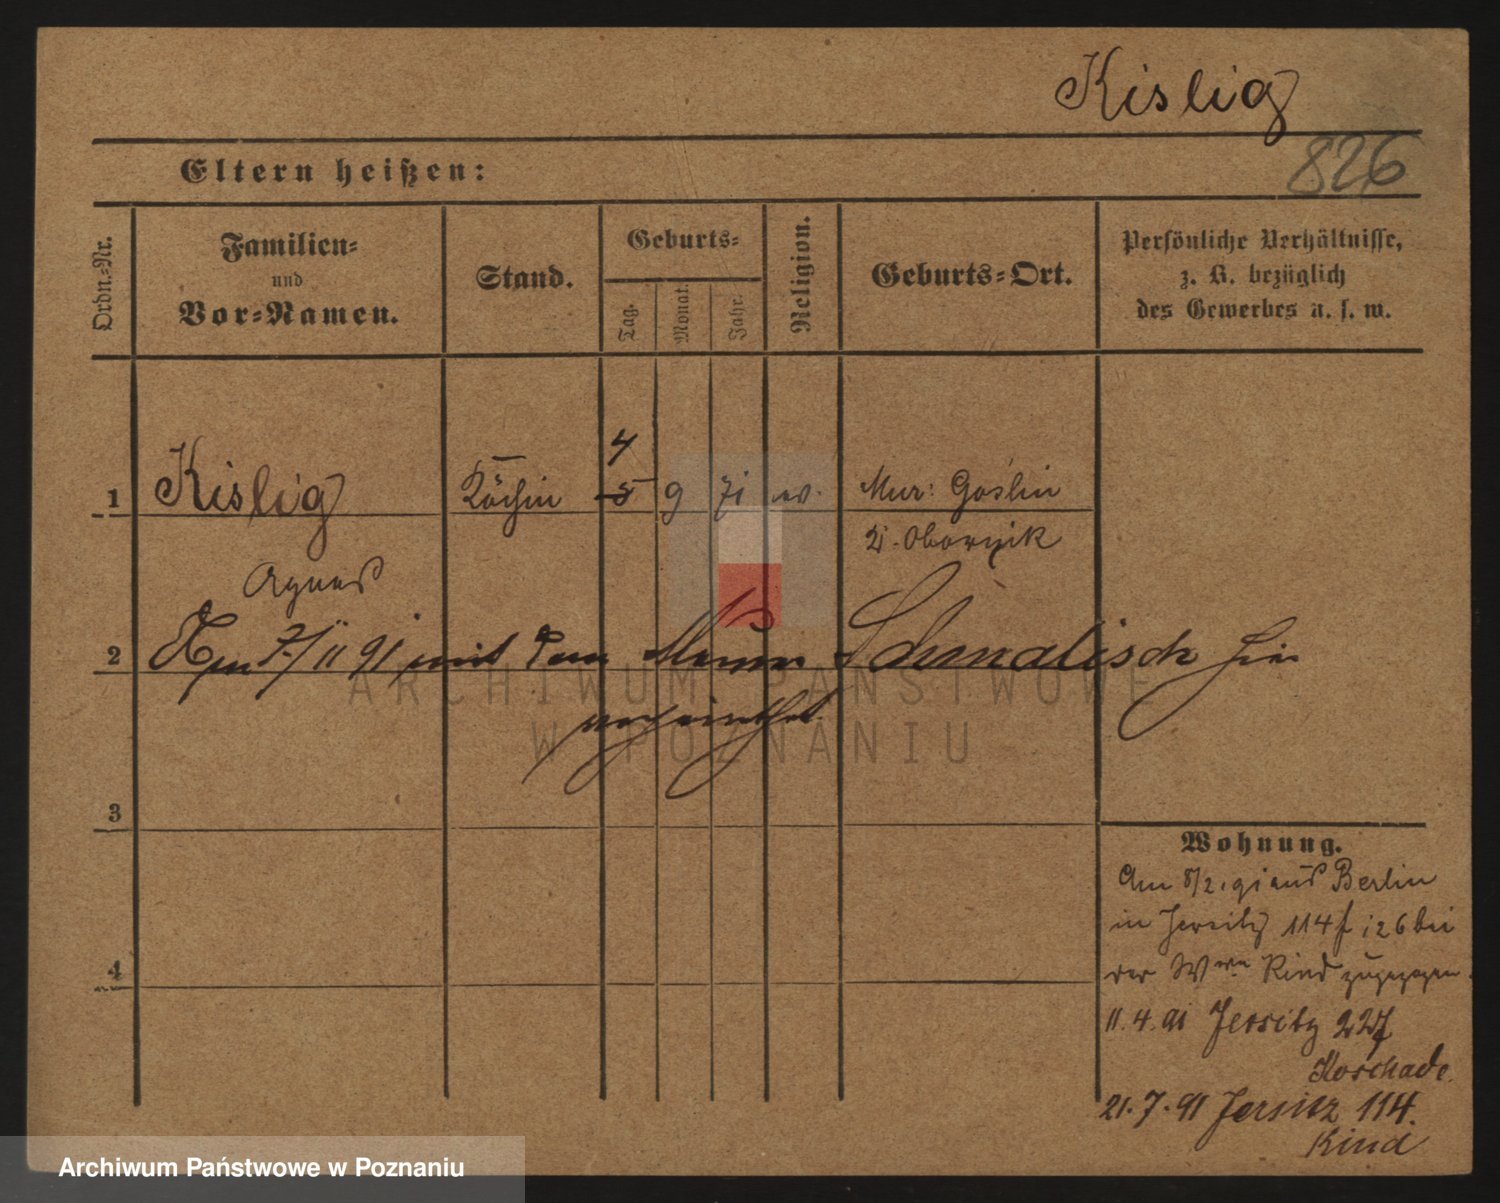 Kislig
826
Eltern heißen:
Ordn.-Nr.
Familien-
und
Vor-Namen.
Stand.
Geburts-
Tag.
Monat.
Jahr.
Religion.
Geburts-Ort.
Persönliche Verhältnisse,
z. B. bezüglich
des Gewerbes u. s. w.
4
1 Kislig Köchin 5 9 71 ev. Mur: Goslin
Obornik
Agnes
2 Am 7/11 91 mit dem Maurer Schmalisch hier
verheirathet.
3
4
Wohnung.
Am 8/2. 91 aus Berlin
in Jersitz 114 f 126 bei
der Wwe Kind zugezogen.
11.4.91 Jersitz 227
Koschade
21.7.91 Jersitz 114.
Kind
ARCHIWUM PAŃSTWOWE
W POZNANIU
Archiwum Państwowe w Poznaniu